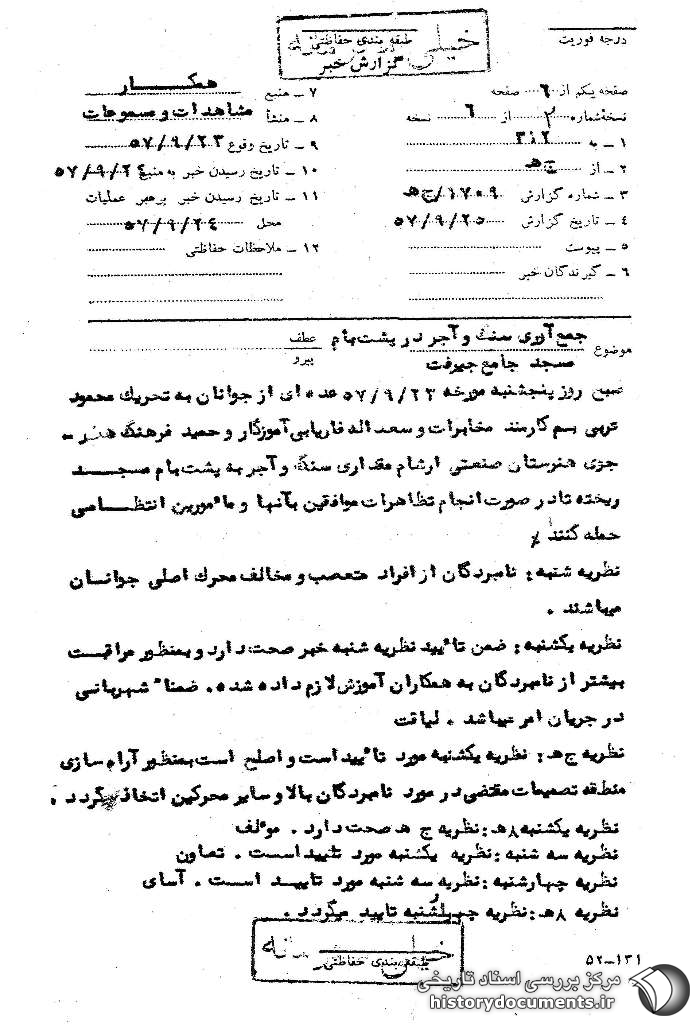 درجه فوریت
خیلی محرمانه
طبقه بندی حفاظتی
گزارش خبر
صفحه یکم از ۶ صفحه
نسخه شماره ۲ از ۶ نسخه
۱ ــ به ۳۱۲
۲ ــ از ج‌ه
۳ ــ شماره گزارش ۱۷۰۹/ج‌ه
۴ ــ تاریخ گزارش ۵۷/۹/۲۵
۵ ــ پیوست
۶ ــ گیرندگان خبر
۷ ــ منبع همکار
۸ ــ منشأ مشاهدات و مسموعات
۹ ــ تاریخ وقوع ۵۷/۹/۲۳
۱۰ ــ تاریخ رسیدن خبر به منبع ۵۷/۹/۲۴
۱۱ ــ تاریخ رسیدن خبر برهبر عملیات
محل ۵۷/۹/۲۴
۱۲ ــ ملاحظات حفاظتی
موضوع جمع آوری سنگ و آجر در پشت بام
مسجد جامع جیرفت
عطف
پیرو
صبح روز پنجشنبه مورخه ۵۷/۹/۲۳ عده ای از جوانان به تحریک محمود
عربی بسم کارمند مخابرات و سعداله فاریابی آموزگار و حمید فرهنگ هنر ــ
جوی هنرستان صنعتی ارشام مقداری سنگ و آجر به پشت بام مسجد
ریخته تا در صورت انجام تظاهرات موافقین بآنها و مأمورین انتظامی
حمله کنند
نظریه شنبه : نامبردگان از افراد متعصب و مخالف محرک اصلی جوانان
میباشند .
نظریه یکشنبه : ضمن تأیید نظریه شنبه خبر صحت دارد و بمنظور مراقبت
بیشتر از نامبردگان به همکاران آموزش لازم داده شده . ضمناً شهربانی
در جریان امر میباشد . لیاقت
نظریه ج‌ه : نظریه یکشنبه مورد تأیید است و اصلح است بمنظور آرام سازی
منطقه تصمیمات مقتضی در مورد نامبردگان بالا و سایر محرکین اتخاذ گردد .
نظریه یکشنبه ۸ه : نظریه ج ه صحت دارد . موئلف
نظریه سه شنبه : نظریه یکشنبه مورد تایید است . تعاون
نظریه چهارشنبه : نظریه سه شنبه مورد تایید است . آسای
نظریه ۸ه : نظریه چهارشنبه تایید میگردد .
خیلی محرمانه
طبقه بندی حفاظتی
۵۲ــ۱۳۱
مرکز بررسی اسناد تاریخی
historydocuments.ir